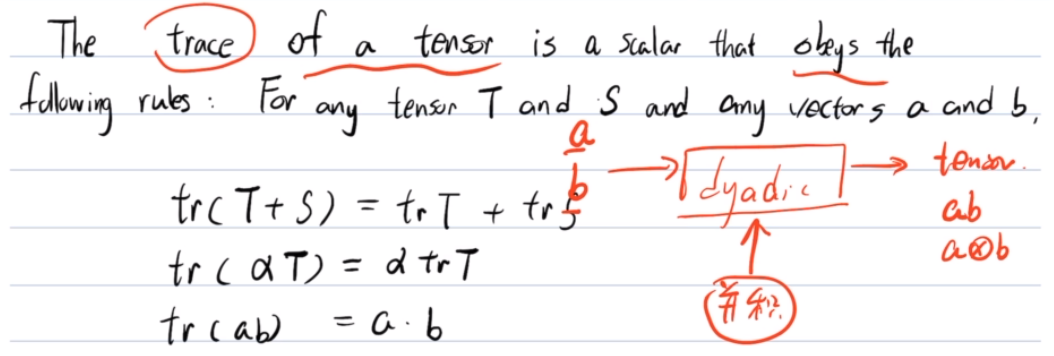 The trace of a tensor is a scalar that obeys the
following rules: For any tensor T and S and any vectors a and b,
tr(T+S) = tr T + tr S
tr(αT) = α tr T
tr(ab) = a · b
a
b
dyadic
tensor.
ab
a⊗b
并积